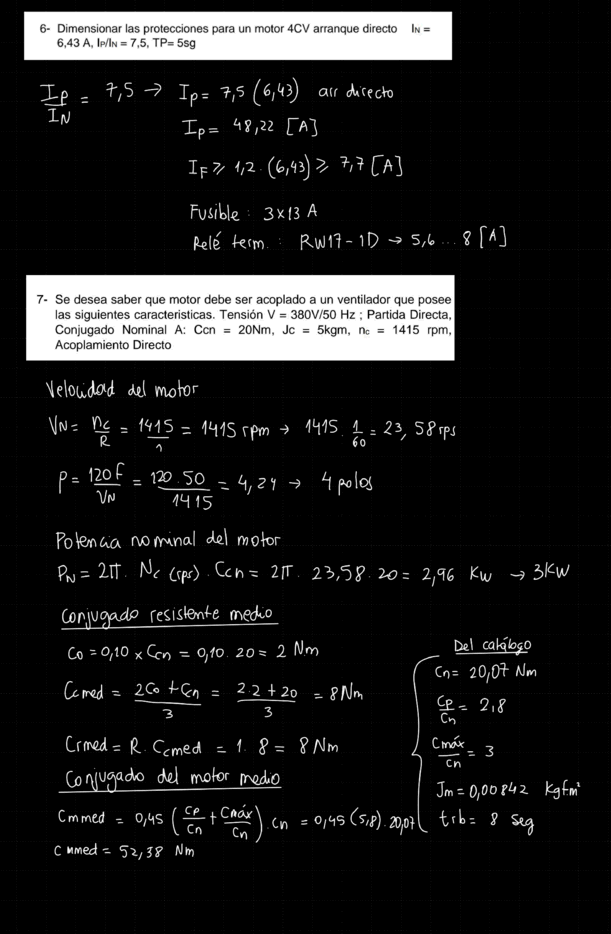 6- Dimensionar las protecciones para un motor 4CV arranque directo IN =
6,43 A, IP/IN = 7,5, TP= 5sg
IP/IN = 7,5 → IP = 7,5 (6,43) arr directo
IP = 48,22 [A]
IF ≥ 1,2 · (6,43) ≥ 7,7 [A]
Fusible : 3x13 A
Relé term. : RW17-1D → 5,6 ... 8 [A]
7- Se desea saber que motor debe ser acoplado a un ventilador que posee
las siguientes caracteristicas. Tensión V = 380V/50 Hz ; Partida Directa,
Conjugado Nominal A: Ccn = 20Nm, Jc = 5kgm, nc = 1415 rpm,
Acoplamiento Directo
Velocidad del motor
VN = nc/R = 1415/1 = 1415 rpm → 1415 · 1/60 = 23,58 rps
P = 120 F/VN = 120 · 50/1415 = 4,24 → 4 polos
Potencia nominal del motor
PN = 2π · Nc (rps) · Ccn = 2π · 23,58 · 20 = 2,96 Kw → 3KW
Conjugado resistente medio
Co = 0,10 x Ccn = 0,10 · 20 = 2 Nm
Ccmed = 2Co + Ccn/3 = 2·2 + 20/3 = 8 Nm
Crmed = R · Ccmed = 1 · 8 = 8 Nm
Conjugado del motor medio
Cmmed = 0,45 (Cp/Cn + Cmáx/Cn) · Cn = 0,45 (5,8) · 20,07
Cmmed = 52,38 Nm
Del catálogo
Cn = 20,07 Nm
Cp/Cn = 2,8
Cmáx/Cn = 3
Jm = 0,00842 Kgf·m²
trb = 8 seg